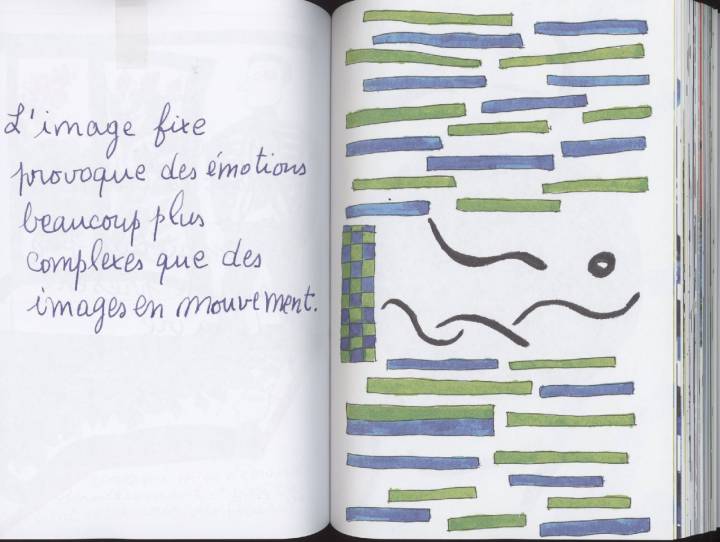 L'image fixe
provoque des émotions
beaucoup plus
complexes que des
images en mouvement.